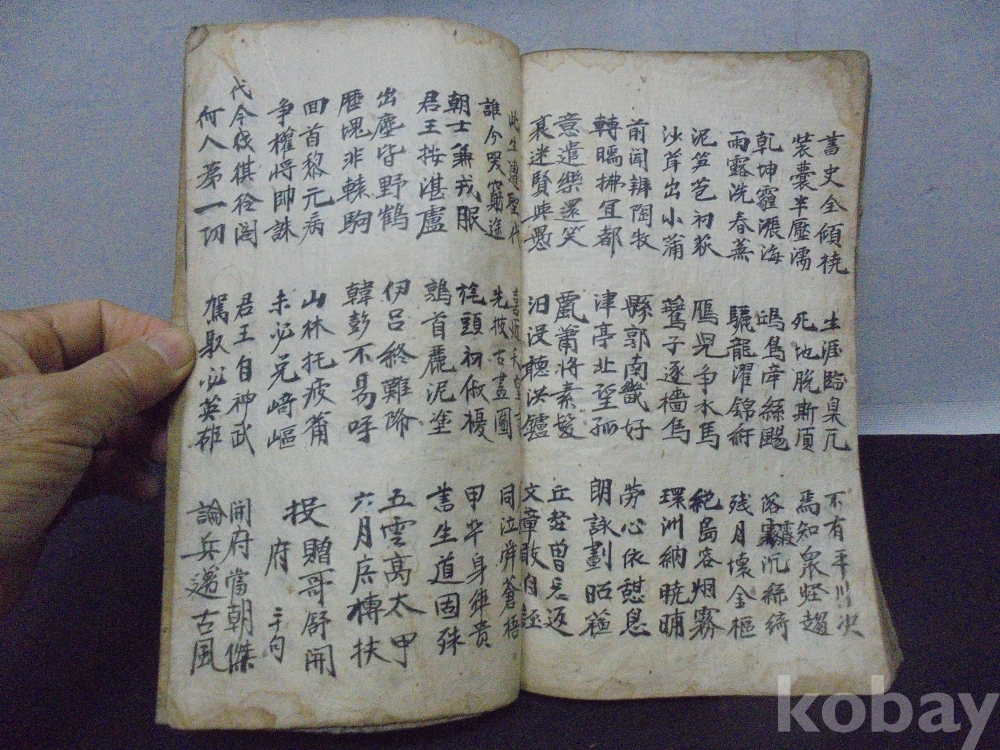 書史全傾撓
裝囊半壓濡
生涯臨臬兀
死地脫斯須
不有平川决
焉知衆壑趨
乾坤霾漲海
雨露洗春蕪
鷗鳥牽絲颺
驪龍濯錦紆
落霞沉綠綺
殘月壞金樞
泥笋苞初荻
沙茸出小蒲
雁兒爭水馬
鷰子逐檣烏
絶島容烟霧
環洲納曉晡
前聞辨陶牧
轉矚拂宜都
縣郭南畿好
津亭北望孤
勞心依憇息
朗詠劃昭蘇
意遣樂還笑
衰迷賢與愚
飄蕭將素髮
汨沒聽洪鑪
丘壑曾忘返
文章敢自誣
此生遭聖代
誰分哭窮途
先披古畫圖
同泣舜蒼梧
朝士兼戎服
君王按湛盧
旄頭初俶擾
鶉首麗泥塗
甲卒身雖貴
書生道固殊
出塵皆野鶴
歷塊非轅駒
伊呂終難降
韓彭不易呼
五雲高太甲
六月摶扶
回首黎元病
爭權將帥誅
山林托疲薾
未必免崎嶇
投贈哥舒開
府 二十句
代今麒猉獜閣
何人第一功
君王自神武
駕馭必英雄
開府當朝傑
論兵邁古風
kobay